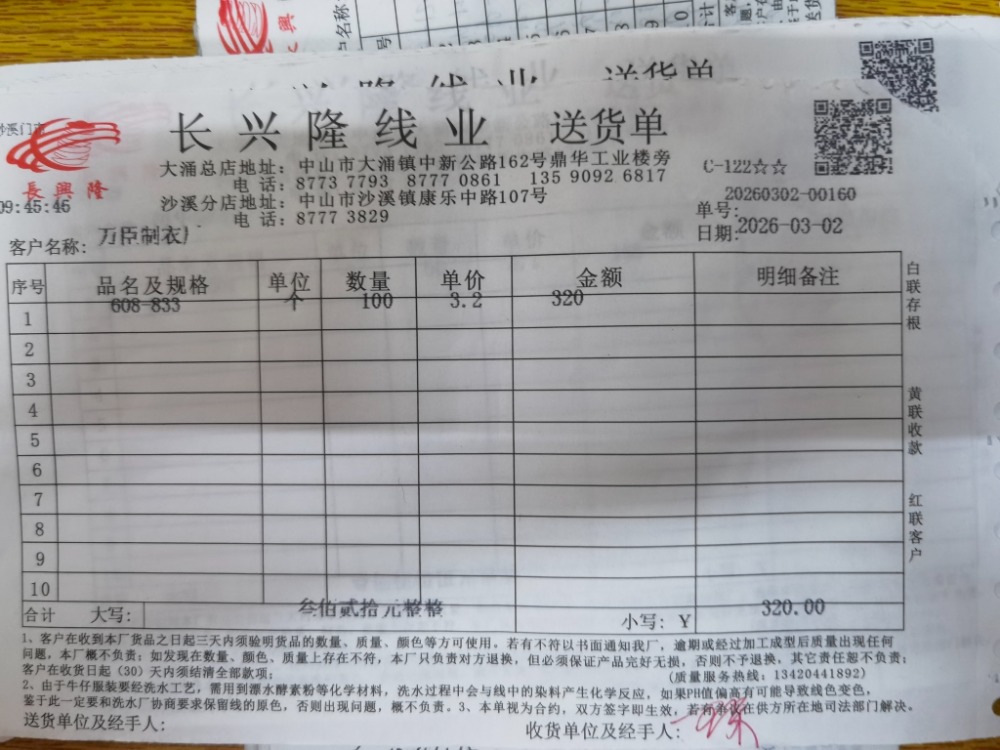 送货单
沙溪门市
長興隆
09:45:45
长兴隆线业 送货单
大涌总店地址：中山市大涌镇中新公路162号鼎华工业楼旁
电话：8773 7793 8777 0861 135 9092 6817
沙溪分店地址：中山市沙溪镇康乐中路107号
电话：8777 3829
C-122☆☆
20260302-00160
单号:
日期:2026-03-02
客户名称: 万臣制衣厂
序号 品名及规格 单位 数量 单价 金额 明细备注
1 608-833 个 100 3.2 320
2
3
4
5
6
7
8
9
10
合计 大写: 叁佰贰拾元整整 小写: Y 320.00
白联存根
黄联收款
红联客户
1、客户在收到本厂货品之日起三天内须验明货品的数量、质量、颜色等方可使用。若有不符以书面通知我厂，逾期或经过加工成型后质量出现任何
问题，本厂概不负责；如发现在数量、颜色、质量上存在不符，本厂只负责对方退换，但必须保证产品完好无损，否则不予退换，其它责任恕不负责；
客户在收货日起（30）天内须结清全部款项； （质量服务热线：13420441892）
2、由于牛仔服装要经洗水工艺，需用到漂水酵素粉等化学材料，洗水过程中会与线中的染料产生化学反应，如果PH值偏高有可能导致线色变色，
鉴于此一定要和洗水厂协商要求保留线的原色，否则出现问题，概不负责。3、本单视为合约，双方签字即生效，若有争议在供方所在地司法部门解决。
送货单位及经手人: 收货单位及经手人: